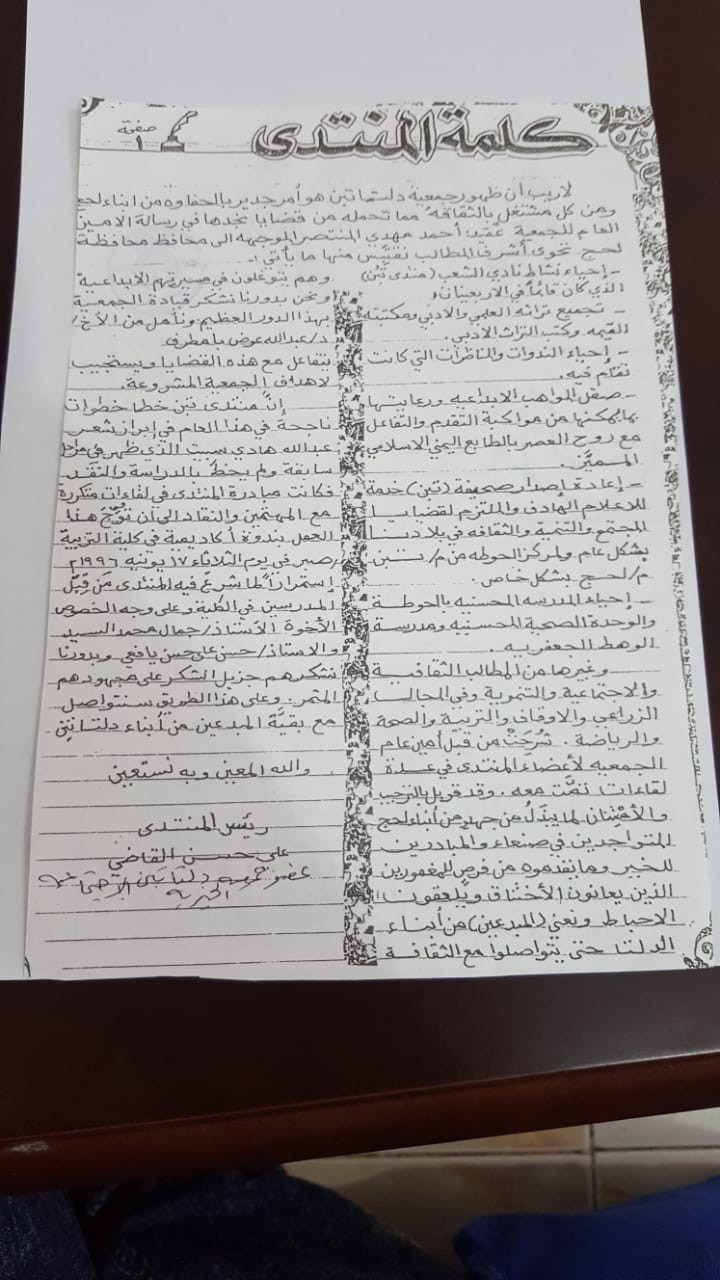 كلمة المنتدى
صفحة
١
لاريب أن ظهور جمعية دلتا تبن هو أمر جدير بالحفاوه من ابناء لحج
ومن كل مشتغل بالثقافة مما تحمله من قضايا نجدها في رسالة الامين
العام للجمعية عقيد: أحمد مهدي المنتصر الموجهه الى محافظ محافظة
لحج. تحوى أشرف المطالب نقتبس منها ما يأتي :-
- إحياء نشاط نادي الشعب (منتدى تبن)
الذي كان قائماً في الاربعينات
- تجميع تراثه العلمي والادبي ومكتبته
القيمه وكتب التراث الادبي.
- إحياء الندوات والمناظرات التي كانت
تقام فيه.
- صقل المواهب الابداعيه ورعايتها
بما يمكنها من مواكبة التقدم والتفاعل
مع روح العصر بالطابع اليمني الاسلامي
المميَّز.
- إعادة إصدار صحيفة (تبن) خدمة
للاعلام الهادف والملتزم لقضايا
المجتمع والتنمية والثقافه في بلادنا
بشكل عام ولمركز الحوطه من م/ تبن
م/ لحج بشكل خاص.
- إحياء المدرسه المحسنيه بالحوطة
والوحدة الصحية المحسنيه ومدرسة
الوهط الجعفريه.
وغيرها من المطالب الثقافية
والاجتماعية والتنموية وفي المجالب
الزراعي والاوقاف والتربية والصحة
والرياضة. شُرحَتْ من قبل أمين عام
الجمعيه لأعضاء المنتدى في عدة
لقاءات تمَّت معه. وقد قوبل بالترحيب
والأمتنان لما يبذل من جهد من أبناء لحج
المتواجدين في صنعاء والمبادرين
للخير وما يقدموه من فرص للمغمورين
الذين يعانون الأختناق ويلعقون
الاحباط ونعني (المبدعين) من أبناء
الدلتا حتى يتواصلوا مع الثقافة
وهم يتوغلون في مسيرتهم الابداعية
ونحن بدورنا نشكر قيادة الجمعية
بهذا الدور العظيم ونأمل من الأخ/
د/ عبدالله عوض بامطرف
يتفاعل مع هذه القضايا ويستجيب
لاهداف الجمعية المشروعة.
إنَّ منتدى تبن خطا خطوات
ناجحة في هذا العام في إبراز شعر
عبدالله هادي سبيت الذي ظهر في مراحل
سابقة ولم يحظَ بالدراسة والنقد
فكانت مبادرة المنتدى في لقاءات متكررة
مع المهتمين والنقاد الى أن توِّجَ هذا
العمل بندوة أكاديمية في كلية التربية
/صبر في يوم الثلاثاء ١٧ يونيه ١٩٩٦م
إستمراراً لما شرعَ فيه المنتدى مَن قِبَل
المدرسين في الكلية وعلى وجه الخصوص
الأخوة الأستاذ/ جمال محمد السيد
والاستاذ/ حسن علي حسن يافعي وبدورنا
نشكرهم جزيل الشكر على مجهودهم
المثمر. وعلى هذا الطريق سنتواصل
مع بقيَّة المبدعين من أبناء دلتا تبن
والله المعين وبه نستعين
رئيس المنتدى
علي حسن القاضي
عضو جمعية دلتا تبن الاجتماعية
الخيرية